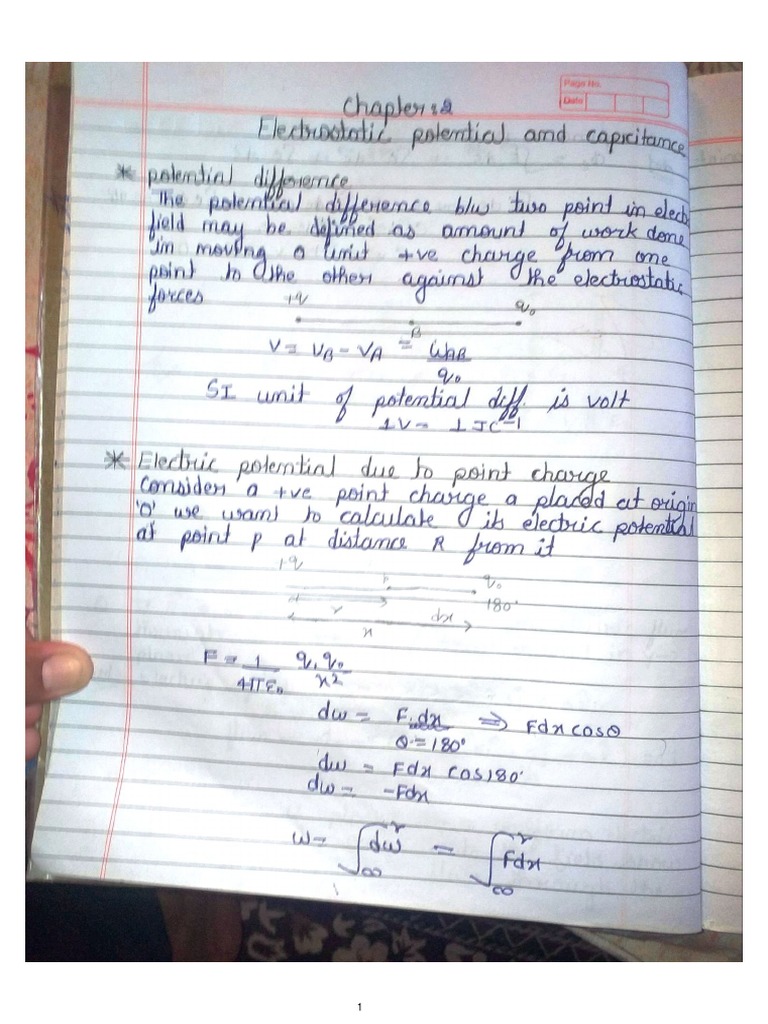 Page No.
Date
Chapter : 2
Electrostatic potential and capicitance
* potential difference
The potential difference b/w two point in elect
field may be defined as amount of work done
in moving a unit +ve charge from one
point to the other against the electrostatic
forces
+q q₀
B
V = V_B - V_A = W_AB / q₀
SI unit of potential diff is volt
1V = 1 JC⁻¹
* Electric potential due to point charge
Consider a +ve point charge a placed at origin
'O' we want to calculate its electric potential
at point p at distance R from it
+q P q₀
r dx 180°
x
F = 1/4πε₀ q₁q₀/x²
dw = F.dx ⇒ Fdx cosθ
θ = 180°
dw = Fdx cos180°
dw = -Fdx
w = ∫_∞^r dw = ∫_∞^r Fdx
1